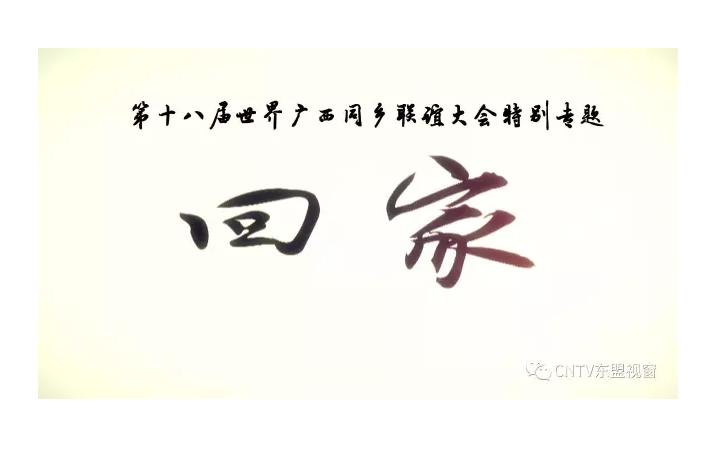 第十八届世界广西同乡联谊大会特别专题
回家
CNTV东盟视窗